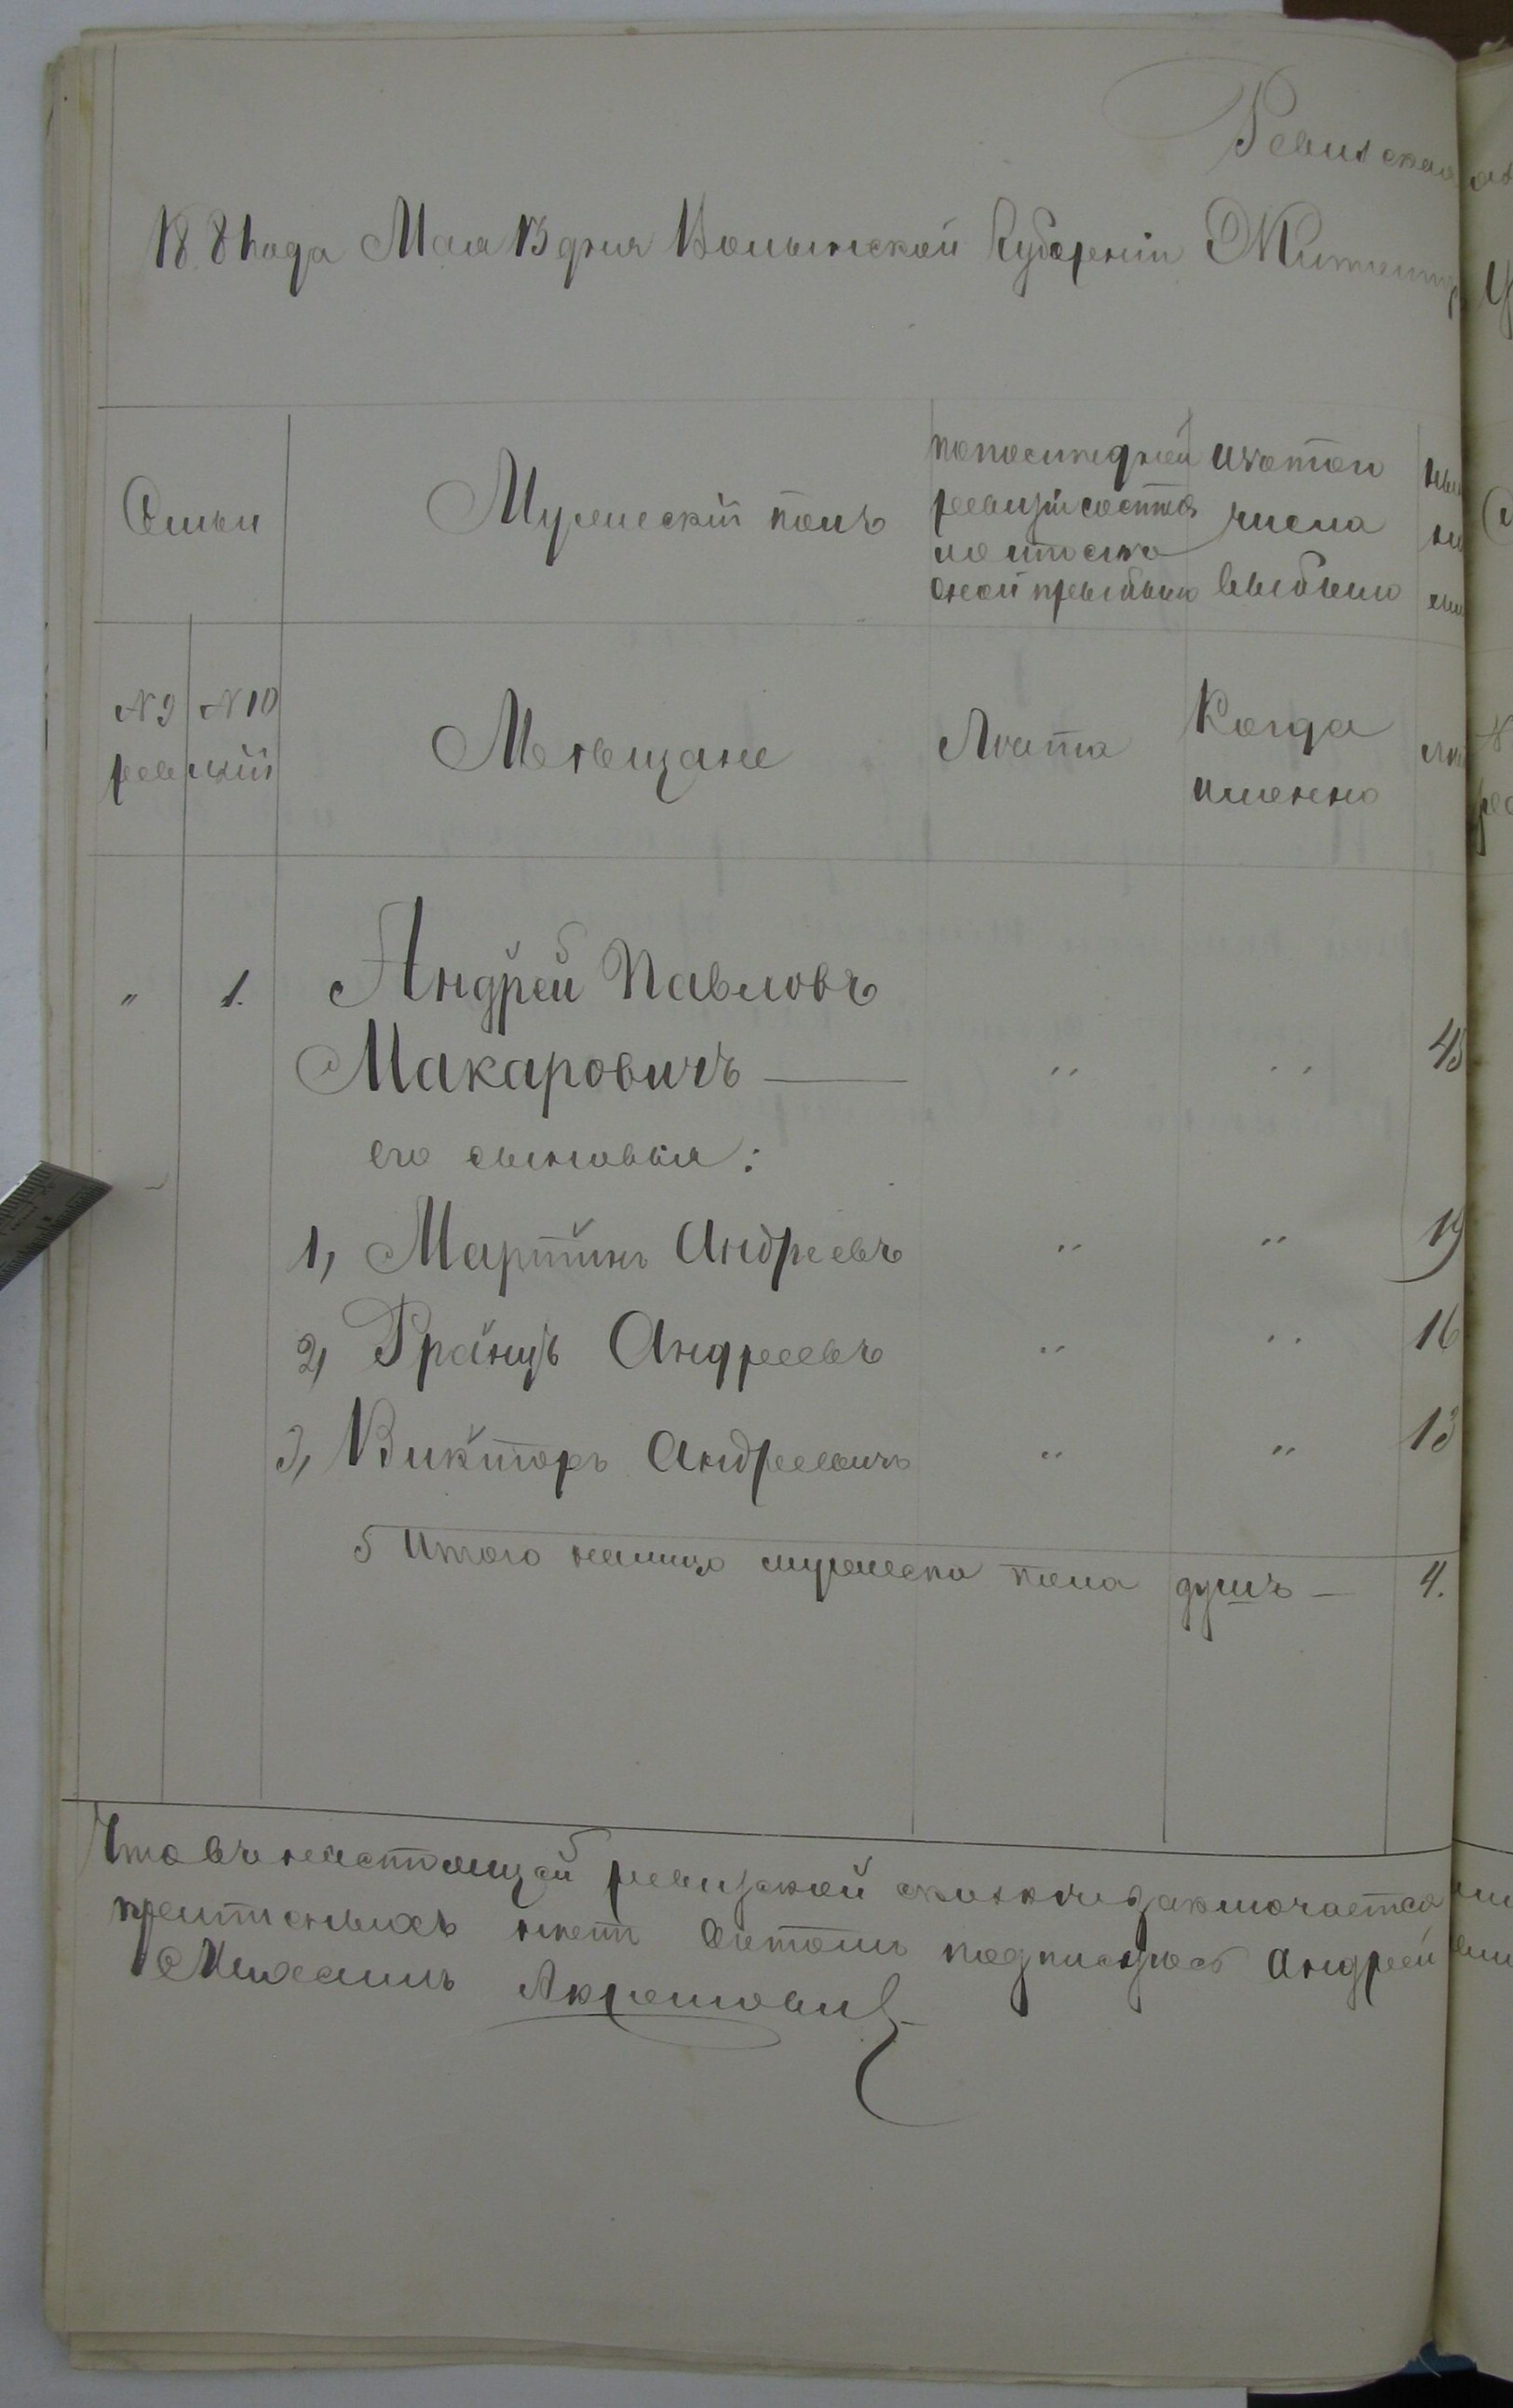 Ревизская
18 81 года Мая 13 дня Волынской Губерніи Житомир
Семьи
Мужескій полъ
по последней
ревизіи состоя
ло и после
оной прибыло
изъ того
числа
выбыло
№ 9 № 10
ревизій
Мѣщане
Лѣта
Когда
именно
" 1. Андрей Павловъ
Макаровичъ — " " 45
его сыновья:
1, Мартинъ Андреевъ " " 19
2, Францъ Андреевъ " " 16
3, Викторъ Андреевичъ " " 13
Итого налицо мужеска пола душъ — 4.
Что въ настоящей ревизской сказке заключается
нетъ въ томъ подписуюсь Андрей
Михаилъ